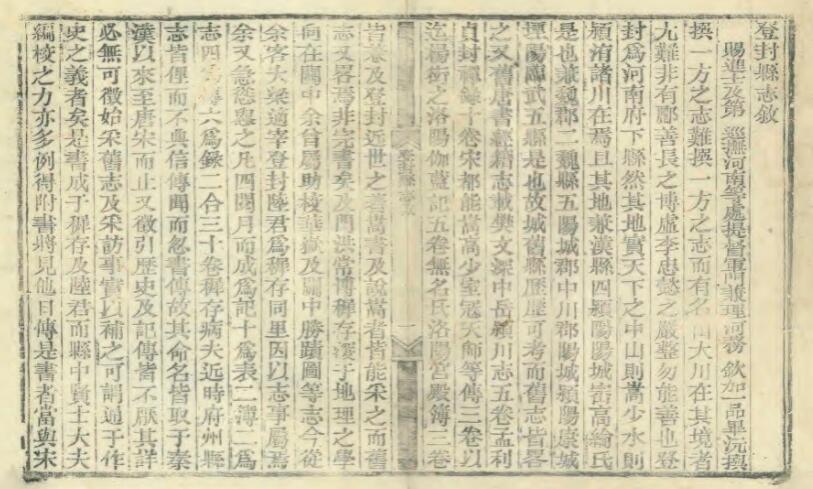 登封縣志敘
賜進士及第 巡撫河南等處提督軍門兼理河務 欽加一品畢沅撰
撰一方之志難撰一方之志而有名山大川在其境者
尢難非有酈善長之博盧李忠懿之嚴整勿能善也登
封爲河南府下縣然其地實天下之中山則嵩少水則
潁洧諸川在焉且其地兼漢縣四潁陽陽城崈高綸氏
是也兼魏郡二魏縣五陽城郡中川郡陽城潁陽康城
堙陽臨武五縣是也故城舊縣歷歷可考而舊志皆畧
之又舊唐書經籍志載樊文深中岳潁川志五卷孟利
貞封禪錄十卷宋都能嵩高少室冦天師等傳三卷以
迄楊衒之洛陽伽藍記五卷無名氏洛陽宮殿簿三卷
皆兼及登封近世之言嵩書及說嵩者皆能采之而舊
志又畧焉非完書矣及門洪常博稺存深于地理之學
向在關中余曾屬助校華嶽及關中勝蹟圖等志今從
余客大梁適宰登封陸君爲稺存同里因以志事屬焉
余又急慫恿之凡四閱月而成爲記十爲表二簿一爲
志四爲傳六爲錄二合三十卷稺存病夫近時府州縣
志皆俚而不典信傳聞而忽書傳故其命名皆取于秦
漢以來至唐宋而止又徵引歷史及記傳皆不厭其詳
必無可徵始采舊志及采訪事實以補之可謂通于作
史之義者矣是書成于稺存及陸君而縣中賢士大夫
編校之力亦多例得附書將見他日傳是書者當與宋